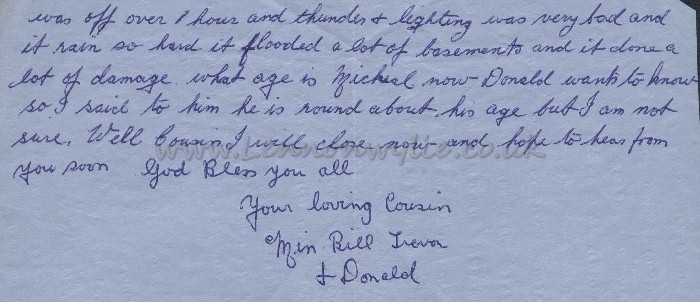 was off over 1 hour and thunder + lighting was very bad and
it rain so hard it flooded a lot of basements and it done a
lot of damage. what age is Micheal now Donald wants to know
so I said to him he is round about his age but I am not
sure. Well Cousin I will close now and hope to hear from
you soon God Bless you all
Your loving Cousin
Min Bill Trevor
+ Donald